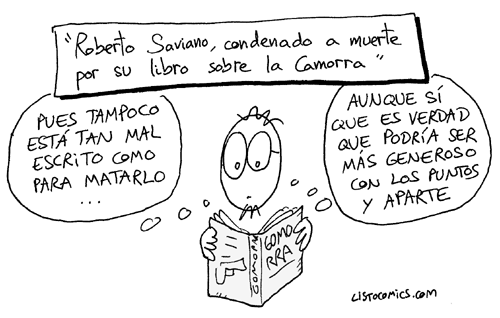 "Roberto Saviano, condenado a muerte
por su libro sobre la Camorra"
PUES TAMPOCO
ESTÁ TAN MAL
ESCRITO COMO
PARA MATARLO
...
AUNQUE SÍ
QUE ES VERDAD
QUE PODRÍA SER
MÁS GENEROSO
CON LOS PUNTOS
Y APARTE
GOMORRA
GOMO
RRA
LISTOCOMICS.COM